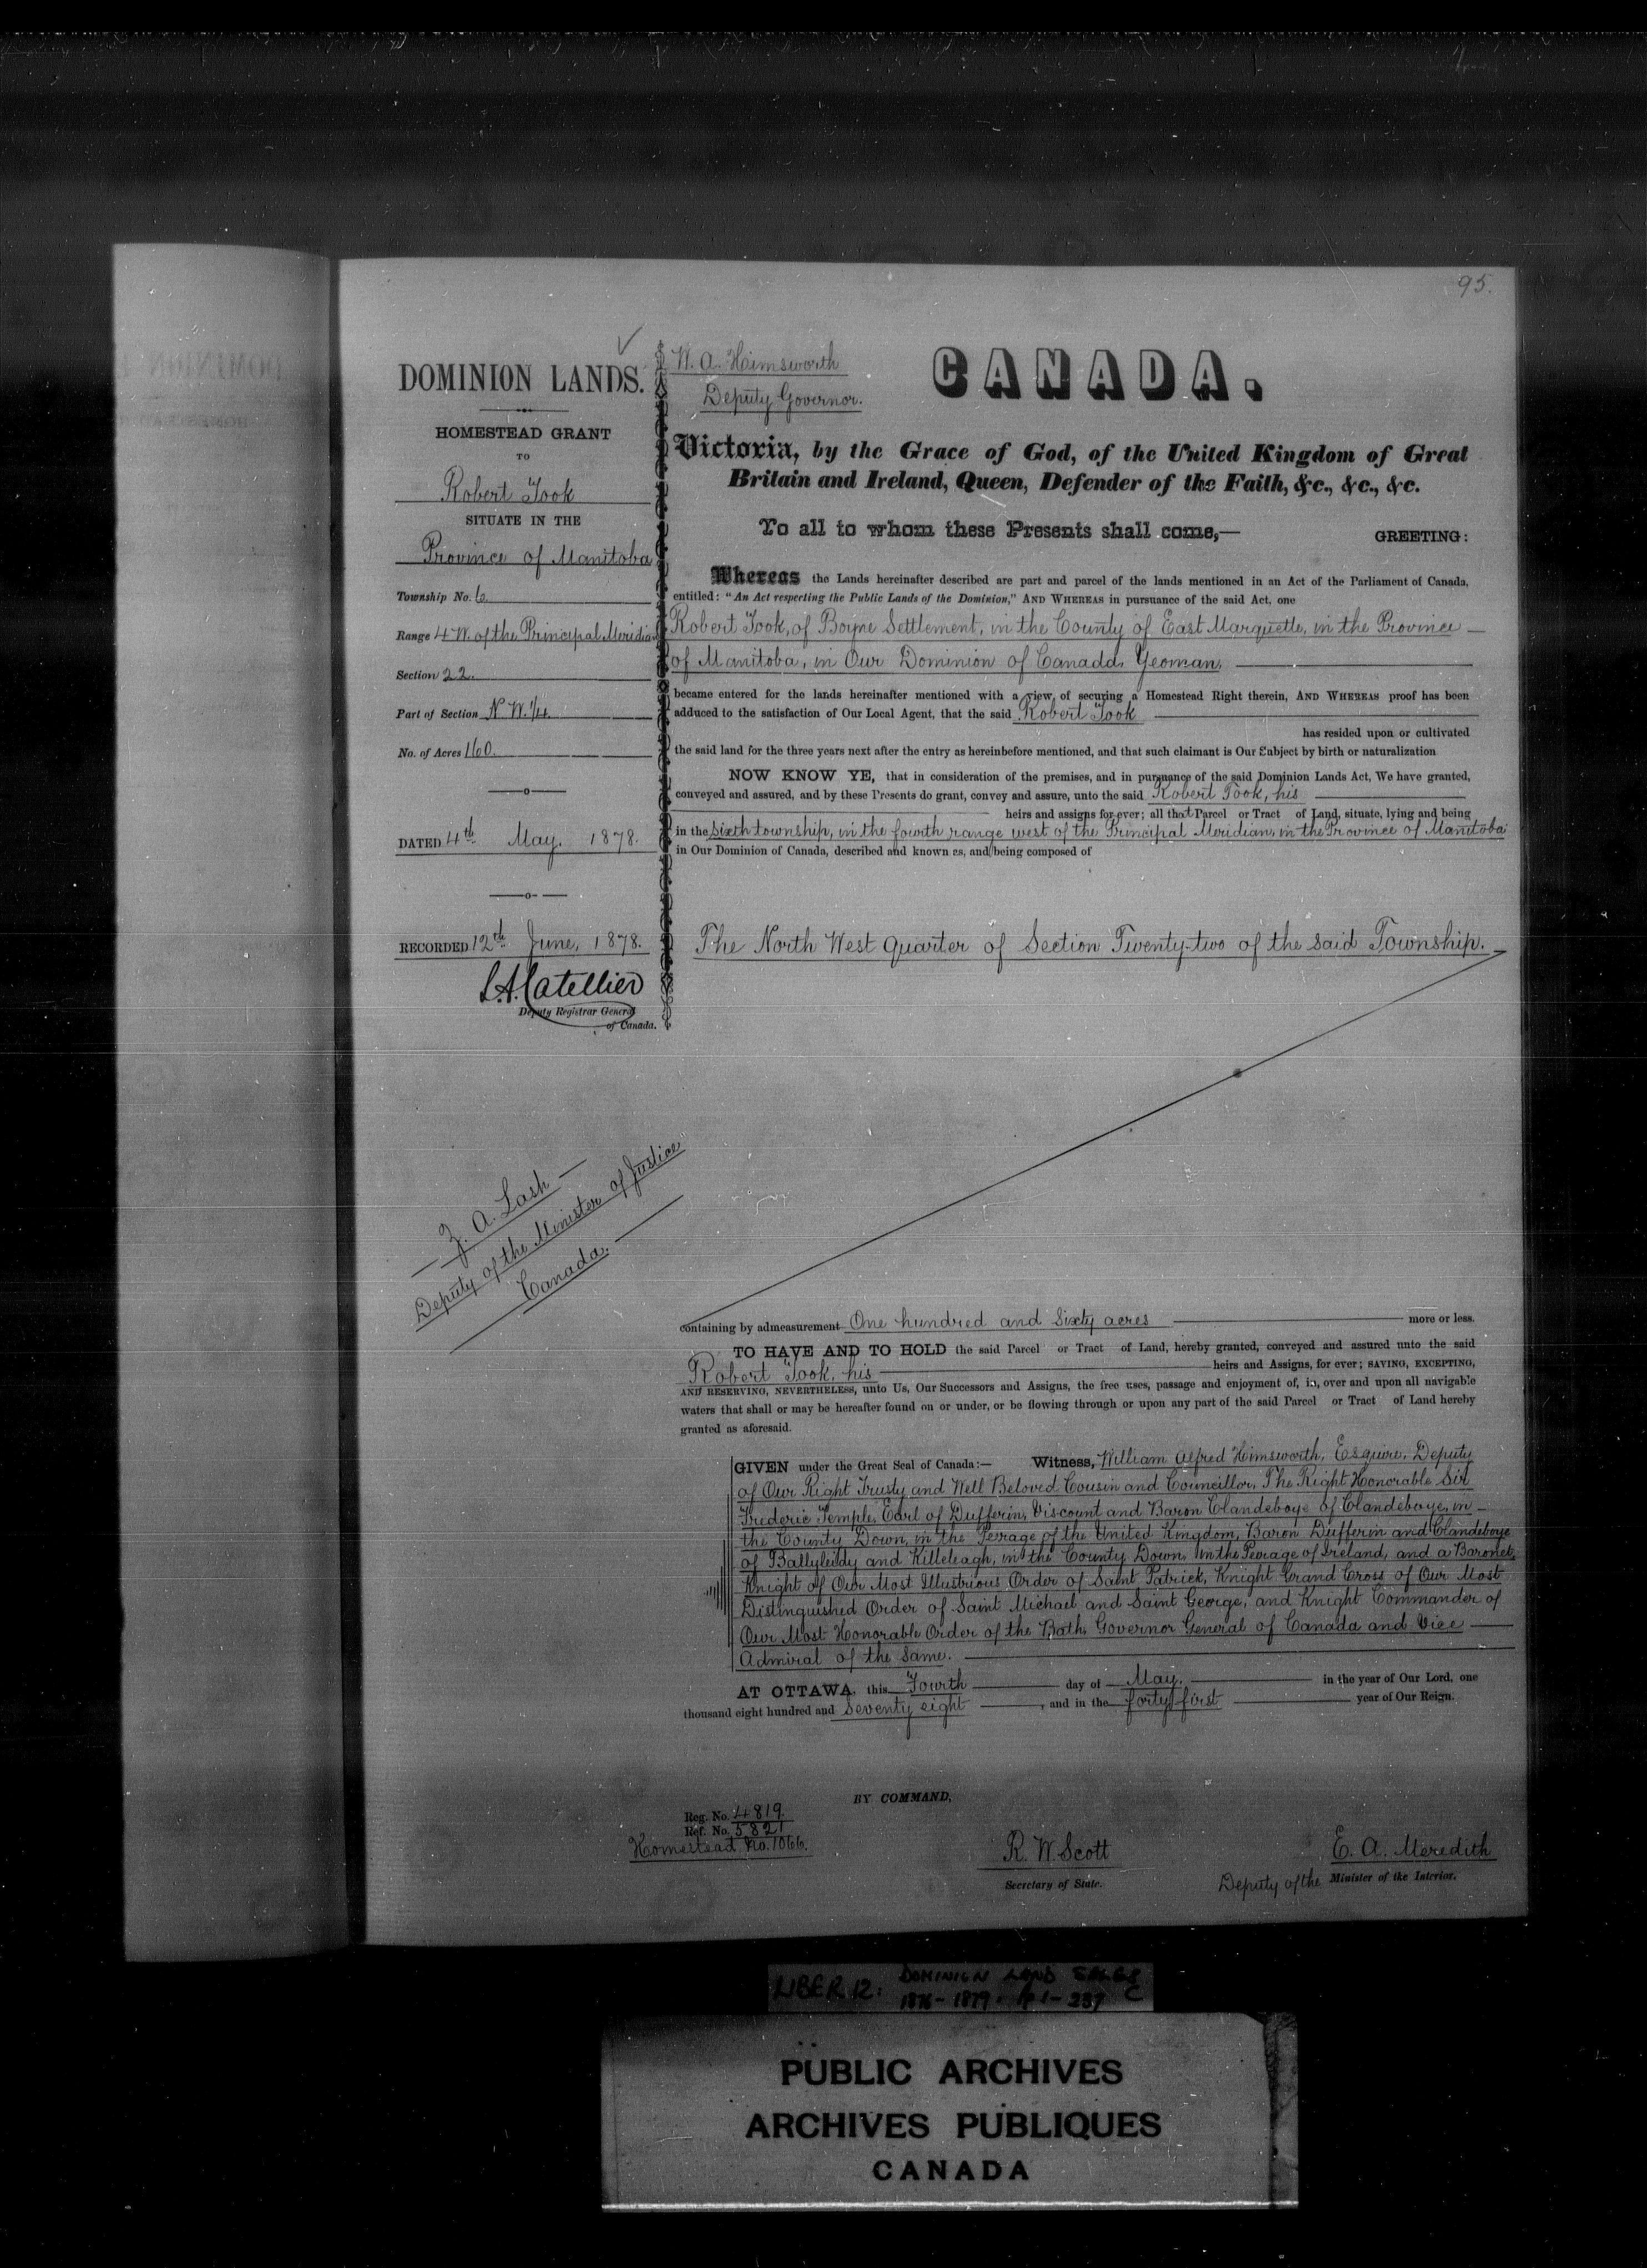 95.
DOMINION LANDS.
HOMESTEAD GRANT
TO
Robert Took
SITUATE IN THE
Province of Manitoba
Township No. 6.
Range 4 W. of the Principal Meridian
Section 22.
Part of Section N. W. 1/4.
No. of Acres 160.
DATED 4th May. 1878.
RECORDED 12th June, 1878.
L.A. Catellier
Deputy Registrar General
of Canada.
Z. A. Lash
Deputy of the Minister of Justice
Canada.
W. A. Himsworth
Deputy Governor.
CANADA.
Victoria, by the Grace of God, of the United Kingdom of Great
Britain and Ireland, Queen, Defender of the Faith, &c., &c., &c.
To all to whom these Presents shall come,— GREETING:
Whereas the Lands hereinafter described are part and parcel of the lands mentioned in an Act of the Parliament of Canada,
entitled: "An Act respecting the Public Lands of the Dominion," AND WHEREAS in pursuance of the said Act, one
Robert Took, of Boyne Settlement, in the County of East Marquette, in the Province
of Manitoba, in Our Dominion of Canada, Yeoman,
became entered for the lands hereinafter mentioned with a view of securing a Homestead Right therein, AND WHEREAS proof has been
adduced to the satisfaction of Our Local Agent, that the said Robert Took
has resided upon or cultivated
the said land for the three years next after the entry as hereinbefore mentioned, and that such claimant is Our Subject by birth or naturalization
NOW KNOW YE, that in consideration of the premises, and in pursuance of the said Dominion Lands Act, We have granted,
conveyed and assured, and by these Presents do grant, convey and assure, unto the said Robert Took, his
heirs and assigns for ever; all that Parcel or Tract of Land, situate, lying and being
in the Sixth township, in the fourth range west of the Principal Meridian, in the Province of Manitoba
in Our Dominion of Canada, described and known as, and being composed of
The North West quarter of Section Twenty-two of the said Township.
containing by admeasurement One hundred and Sixty acres more or less.
TO HAVE AND TO HOLD the said Parcel or Tract of Land, hereby granted, conveyed and assured unto the said
Robert Took, his heirs and Assigns, for ever; SAVING, EXCEPTING,
AND RESERVING, NEVERTHELESS, unto Us, Our Successors and Assigns, the free uses, passage and enjoyment of, in, over and upon all navigable
waters that shall or may be hereafter found on or under, or be flowing through or upon any part of the said Parcel or Tract of Land hereby
granted as aforesaid.
GIVEN under the Great Seal of Canada:— Witness, William Alfred Himsworth, Esquire, Deputy
of Our Right Trusty and Well Beloved Cousin and Councillor, The Right Honorable Sir
Frederic Temple, Earl of Dufferin, Viscount and Baron Clandeboye of Clandeboye, in
the County Down, in the Peerage of the United Kingdom, Baron Dufferin and Clandeboye
of Ballyleidy and Killeleagh, in the County Down, in the Peerage of Ireland, and a Baronet,
Knight of Our Most Illustrious Order of Saint Patrick, Knight Grand Cross of Our Most
Distinguished Order of Saint Michael and Saint George, and Knight Commander of
Our Most Honorable Order of the Bath, Governor General of Canada and Vice
Admiral of the Same.
AT OTTAWA, this Fourth day of May. in the year of Our Lord, one
thousand eight hundred and Seventy eight, and in the forty first year of Our Reign.
BY COMMAND,
Reg. No. 4819.
Ref. No. 5821
Homestead No. 1066.
R. W. Scott
Secretary of State.
E. A. Meredith
Deputy of the Minister of the Interior.
LIBER 12: DOMINION LAND SALES
1876-1879. pp 1-237 C
PUBLIC ARCHIVES
ARCHIVES PUBLIQUES
CANADA